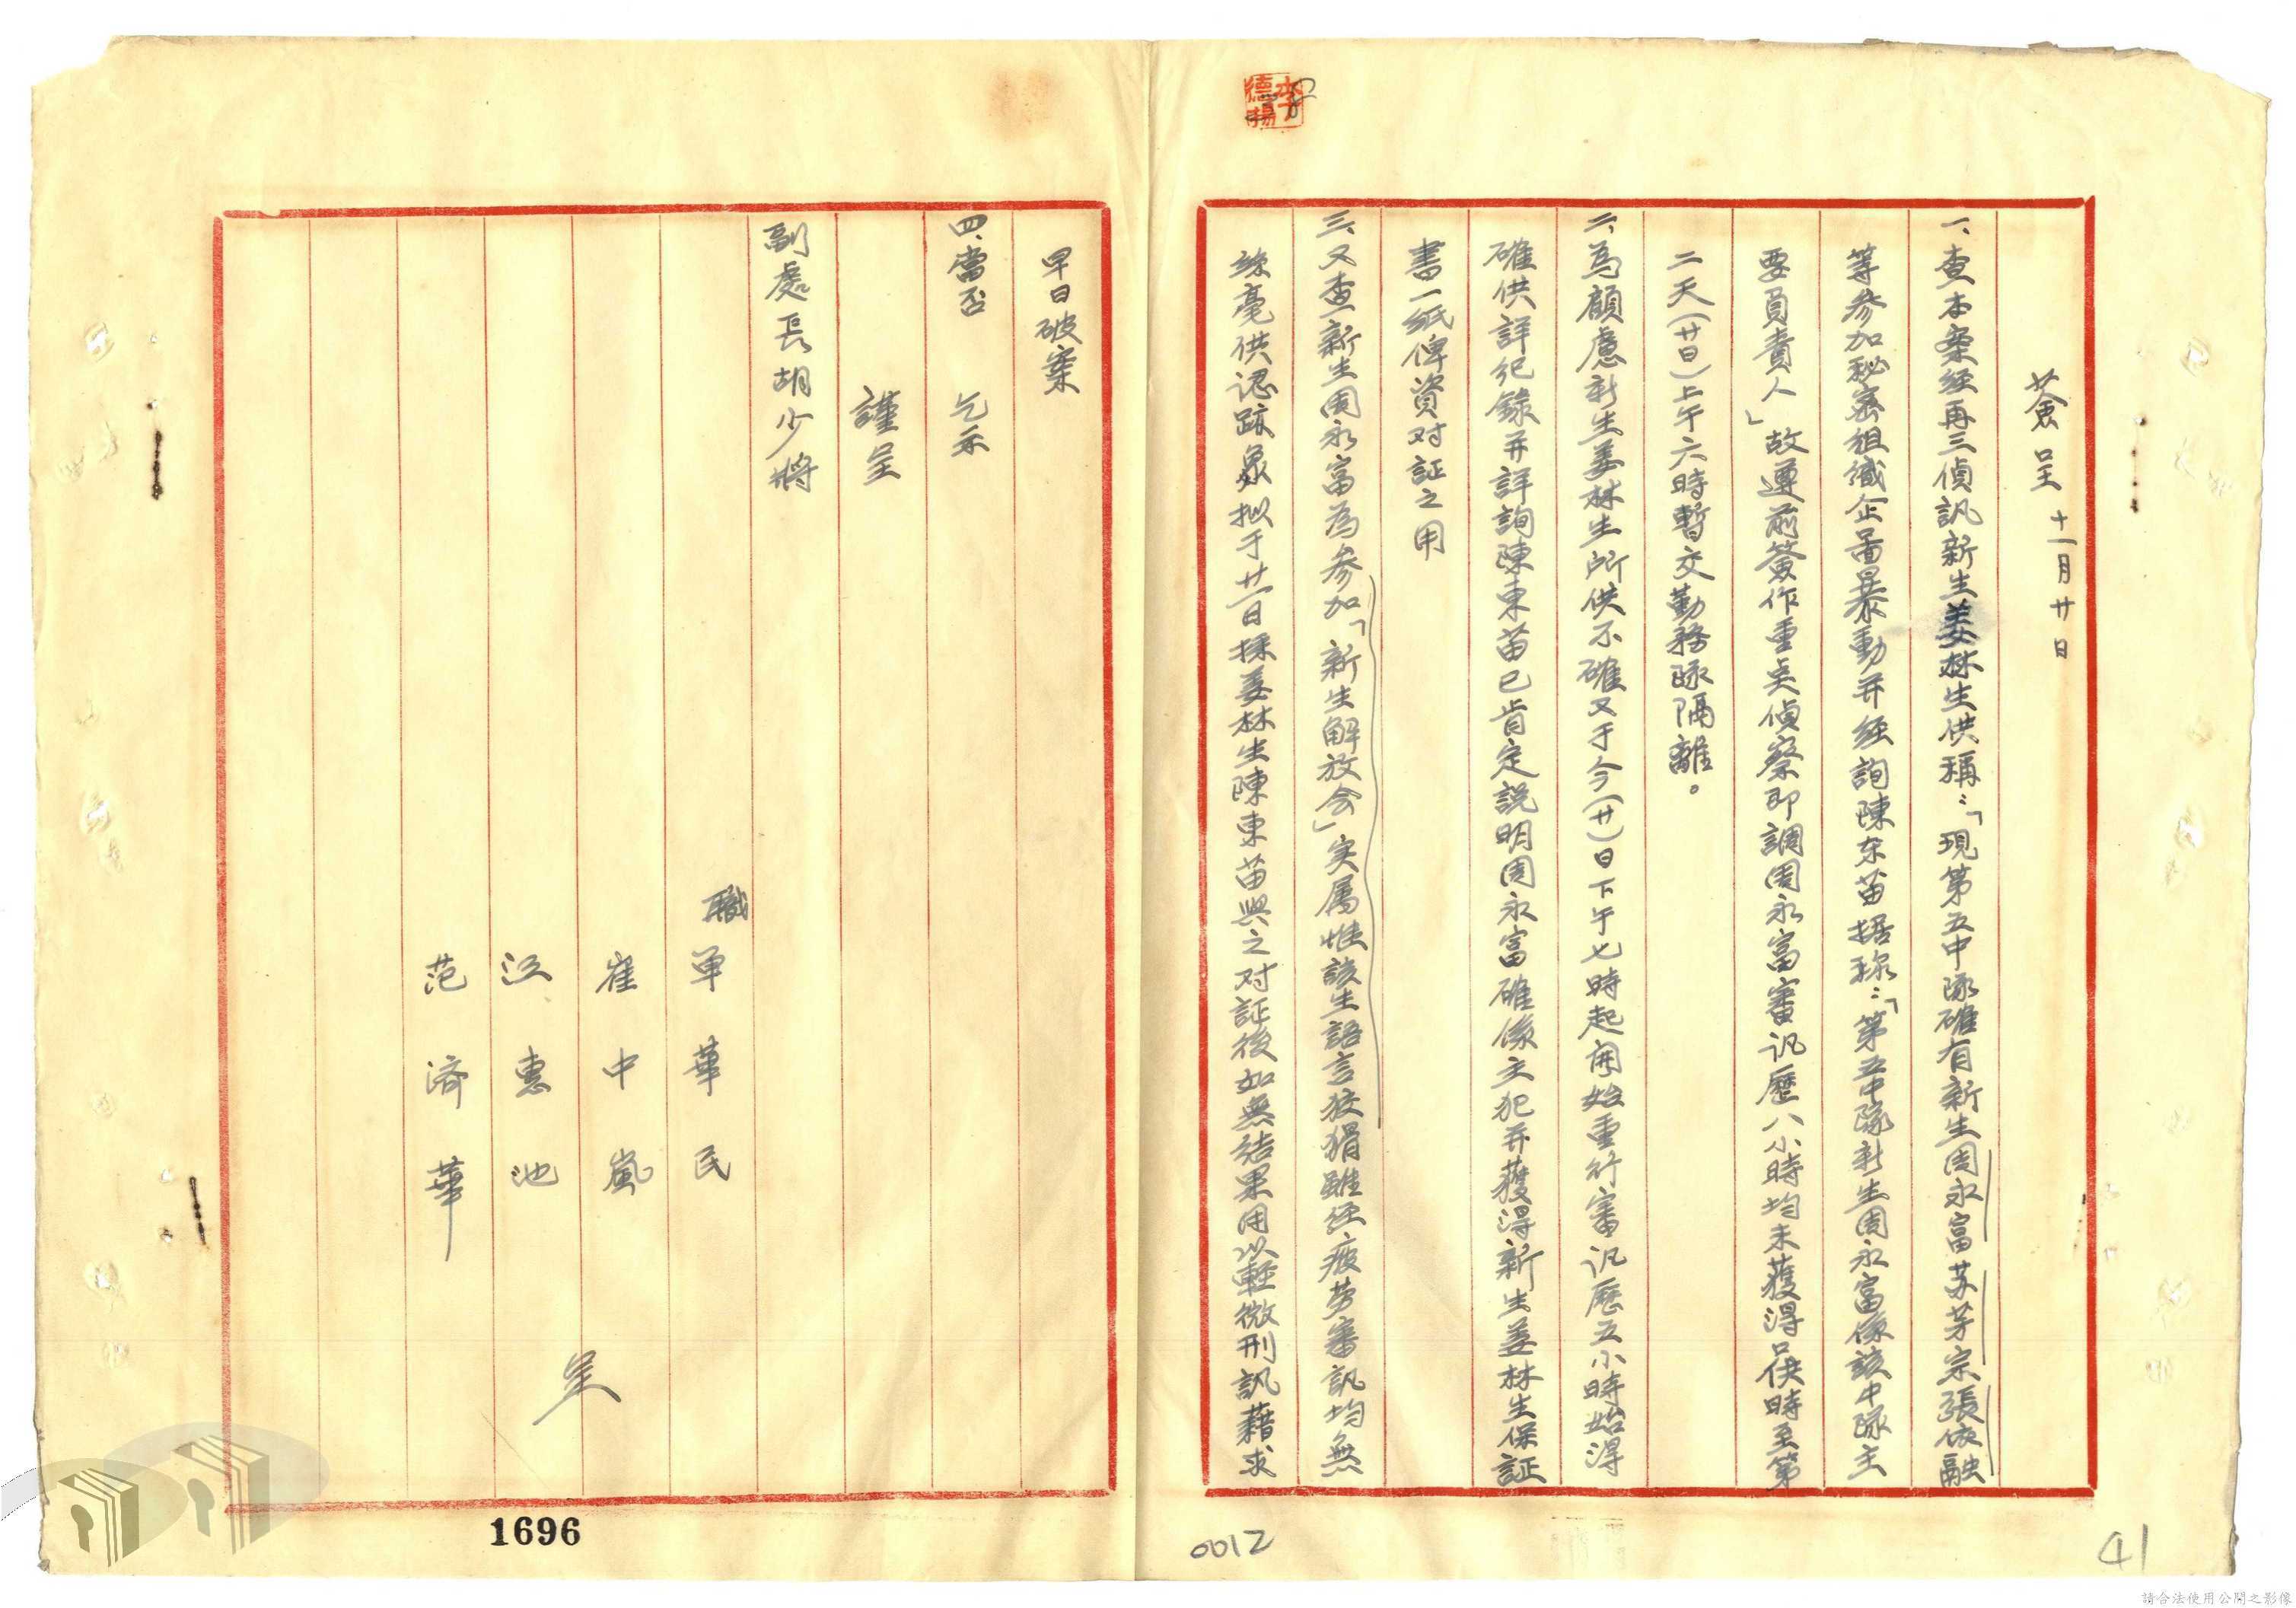 李德揚
簽呈 十一月廿日
一、查本案經再三偵訊新生姜林生供稱：「現第五中隊確有新生周永富苏芽宗張依融
等參加秘密組織企啚暴動并經詢陳东苗據称：「第五中隊新生周永富係該中隊主
要員責人」故遵前簽作重点偵察即調周永富審讯歷八小時均未獲得口供時至第
二天（廿日）上午六時暫交勤務隊隔離。
二、為顧慮新生姜林生所供不確又于今（廿）日下午七時起開始重行審讯歷五小時始得
確供詳紀錄并詳詢陳東苗已肯定說明周永富確係主犯并獲得新生姜林生保証
書一紙俾資对証之用
三、又查新生周永富為參加「新生解放会」实属惟該生語言狡猾雖經疲劳審訊均無
絲毫供認跡象拟于廿一日採姜林生陳東苗與之对証後如無结果用以輕微刑訊藉求
早日破案
四、當否 乞示
謹呈
副處長胡少將
職 單華民
崔中嵐
江惠池
范濟華
呈
1696
0012
41
請合法使用公開之影像